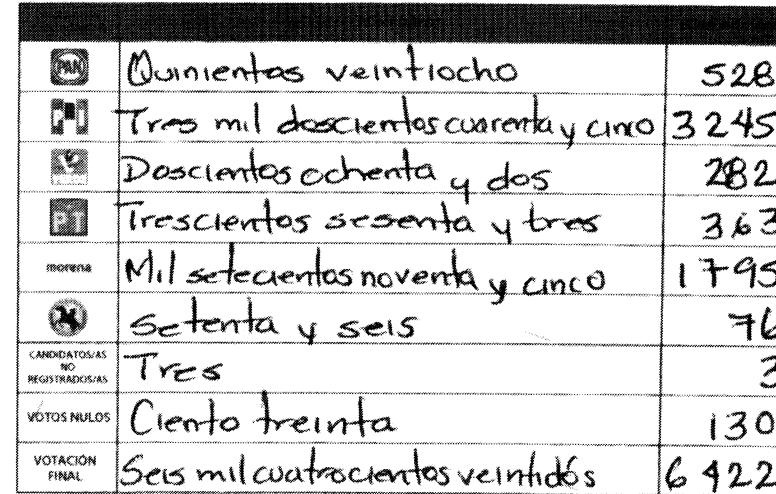 PAN Quinientos veintiocho 528
PRI Tres mil doscientos cuarenta y cinco 3245
Doscientos ochenta y dos 282
PT Trescientos sesenta y tres 363
morena Mil setecientos noventa y cinco 1795
Setenta y seis 76
CANDIDATOS/AS
NO
REGISTRADOS/AS Tres 3
VOTOS NULOS Ciento treinta 130
VOTACIÓN
FINAL Seis mil cuatrocientos veintidós 6422